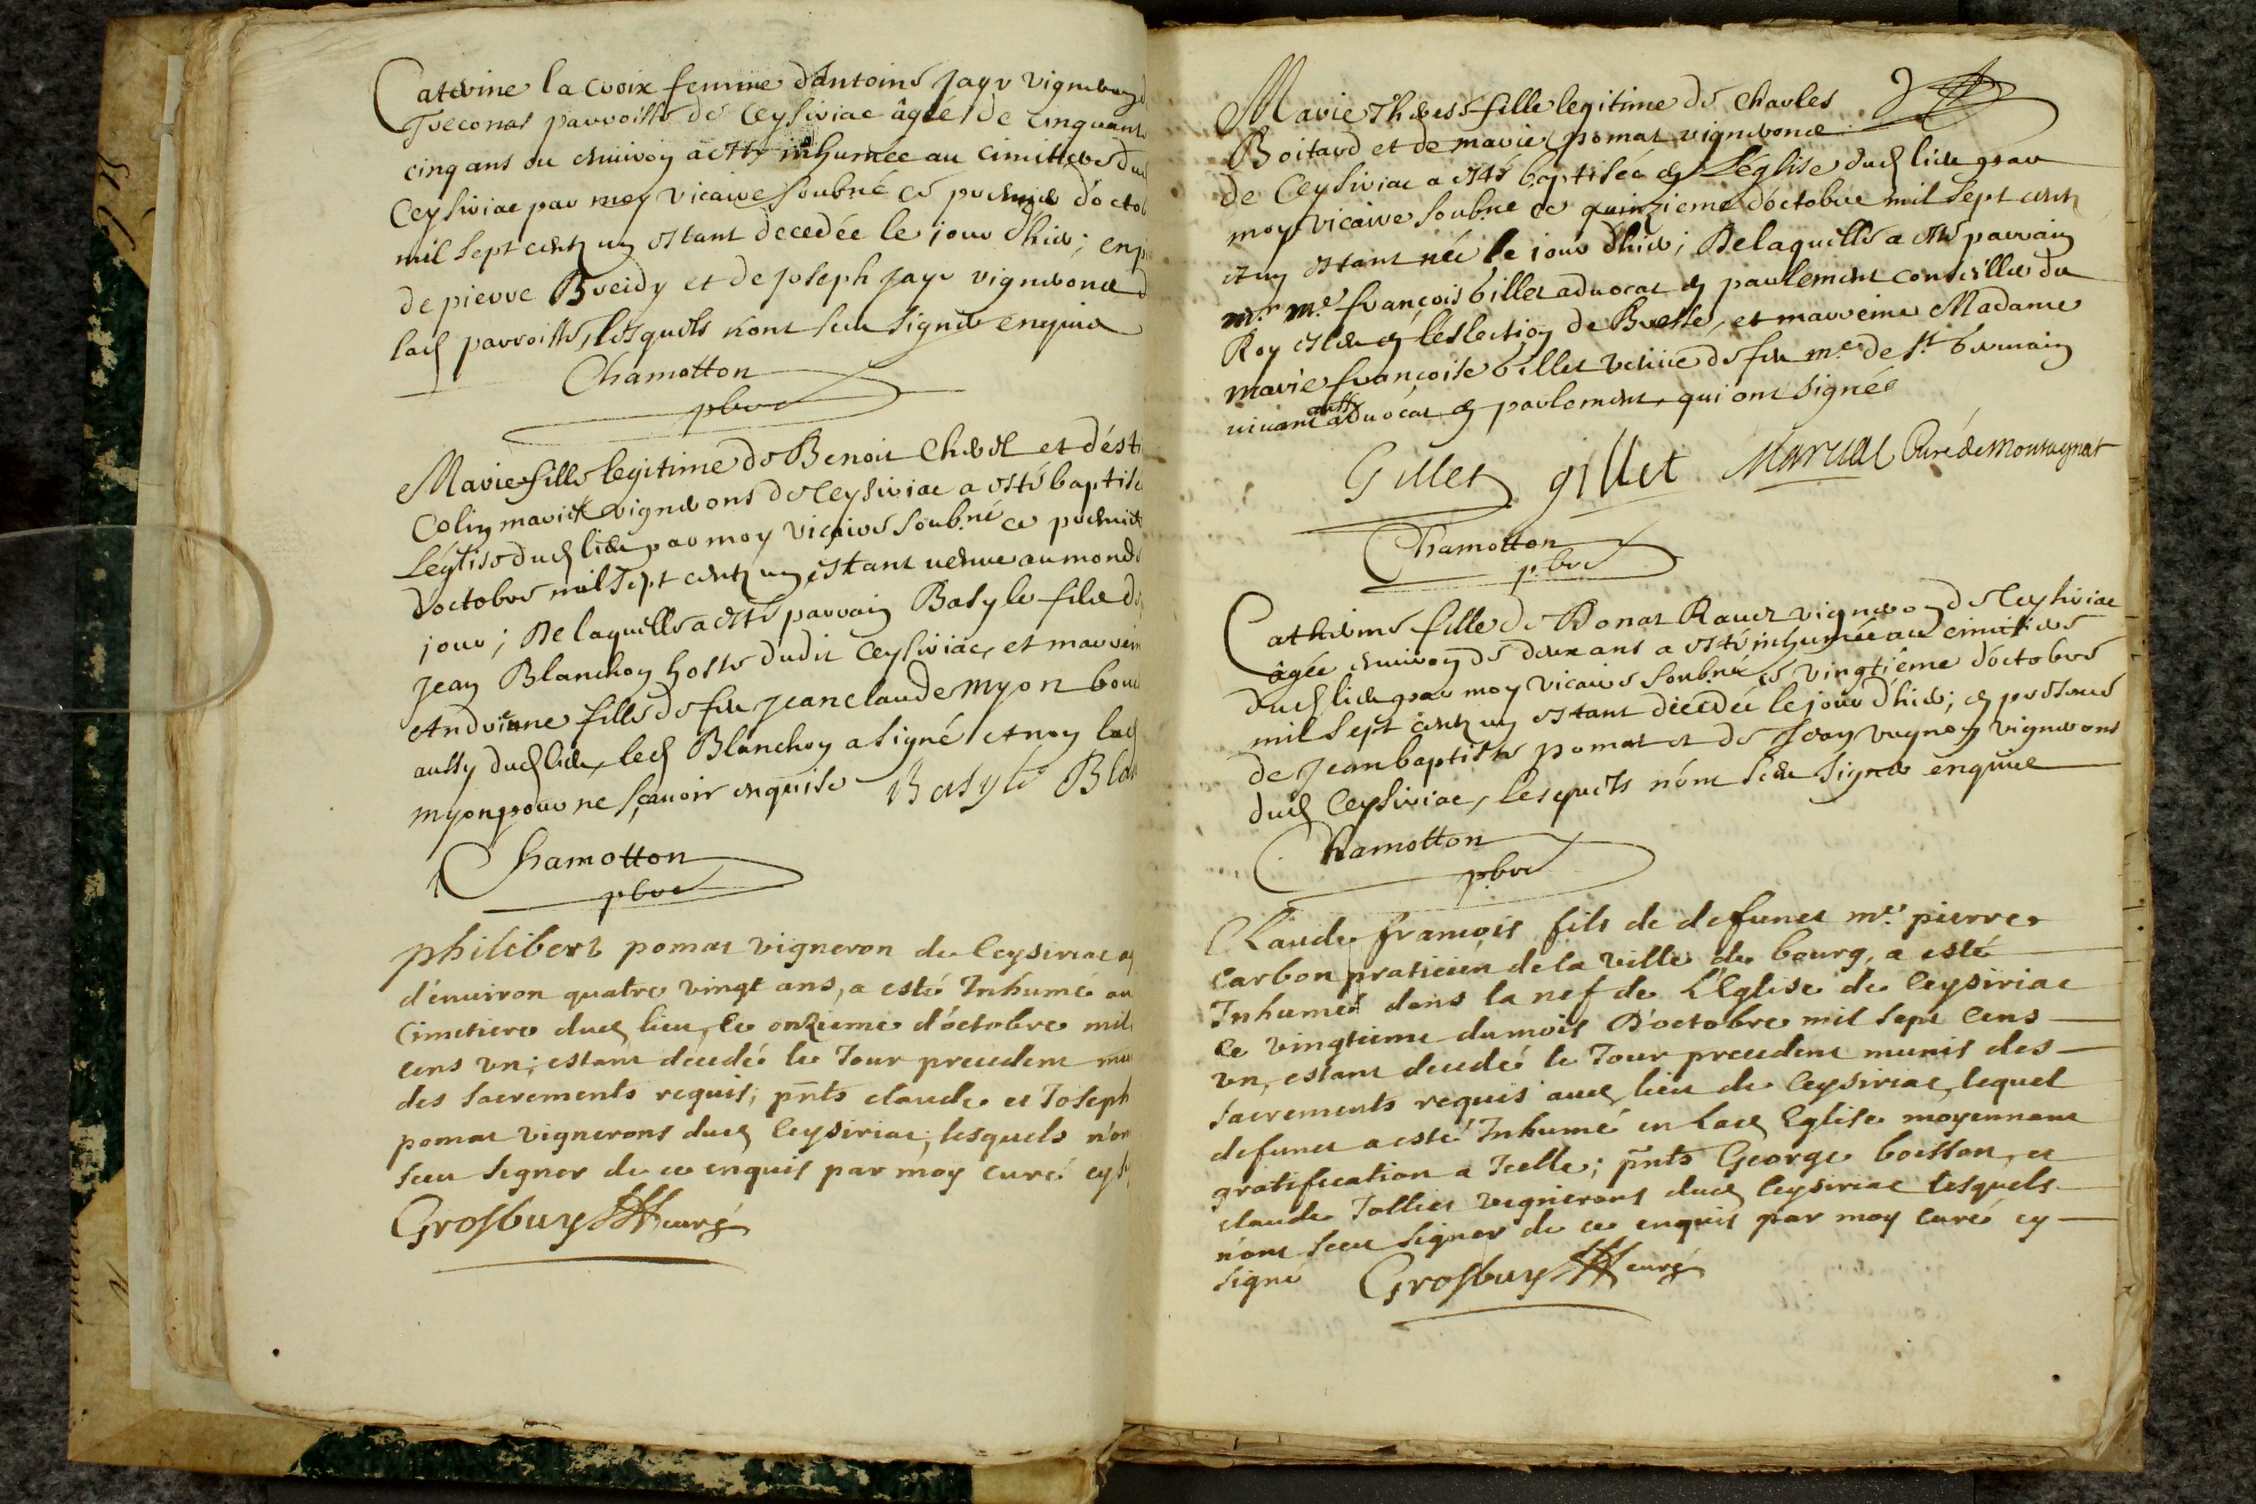 Caterine la croix femme d'Antoine Jayr vigneron d
Treconas parroisse de Ceysiriac âgée de cinquante
cinq ans ou environ a esté inhumée au cimittere dud
Ceysiriac par moy vicaire soubné ce premier d'octob
mil sept cents un estant decedée le jour d'hier; en p
de pierre Breidy et de Joseph Jayr vignerons d
lad parroisse, lesquels n'ont sceu signer enquis
Chamotton
pbre
Marie fille legitime de Benoit Chevel et d'est
Colin mariés vignerons de Ceysiriac a esté baptisé
L'église dud lieu par moy vicaire soubné ce premier
d'octobre mil sept cents un estant venue au monde
jour; De laquelle a esté parrain Basyle fils de
Jean Blanchon hoste dudit Ceysiriac, et marrein
Andrienne fille de feu Jean claude Myon bou
aussy dud lieu, led Blanchon a signé et non lad
myon pour ne sçavoir enquise Basyle Blan
Chamotton
pbre
philibert pomat vigneron de Ceysiriac a
d'environ quatre vingt ans, a esté Inhumé au
Cimetiere dud lieu, le onzieme d'octobre mil
cens un; estant decedé le Jour precedent mu
des sacrements requis; pnts claude et Joseph
pomat vignerons dud Ceysiriac; lesquels n'on
sceu signer de ce enquis par moy curé cy s
Grosbuy curé
Marie Therese fille legitime de Charles
Boitard et de marie pomat vignerons
de Ceysiriac a esté baptisée en L'église dud lieu par
moy vicaire soubné ce quinzieme d'octobre mil sept cents
et un estant née le jour d'hier; De laquelle a esté parrain
mr. me. françois Gillet advocat en parlement conseiller du
Roy esleu en l'eslection de Bresse, et marreine Madame
marie françoise Gillet veuve de feu me. de st Germain
vivant aussy advocat en parlement, qui ont signée
Gillet gillet Marual Curé de Montagnat
Chamotton
pbre
Catherine fille de Donat Ravet vigneron de Ceysiriac
âgée environ de deux ans a esté inhumée au cimittere
dud lieu par moy vicaire soubné ce vingtiéme d'octobre
mil sept cents un estant decedée le jour d'hier; en presence
de Jean baptiste pomat et de Jean vugnon vignerons
dud Ceysiriac, lesquels n'ont sceu signer enquis
Chamotton
pbre
Claude françois fils de defunct me. pierre
Carbon praticien de la ville de bourg, a esté
Inhumé dans la nef de L'Eglise de Ceysiriac
ce vingtieme du mois D'octobre mil sept Cens
un, estant decedé le Jour precedent munis des
sacrements requis aud lieu de Ceysiriac, lequel
defunct a esté Inhumé en lad Eglise moyennant
gratification a Icelle; pnts George boisson, et
claude Tollier vignerons dud Ceysiriac lesquels
n'ont sceu signer de ce enquis par moy curé cy
signé Grosbuy curé